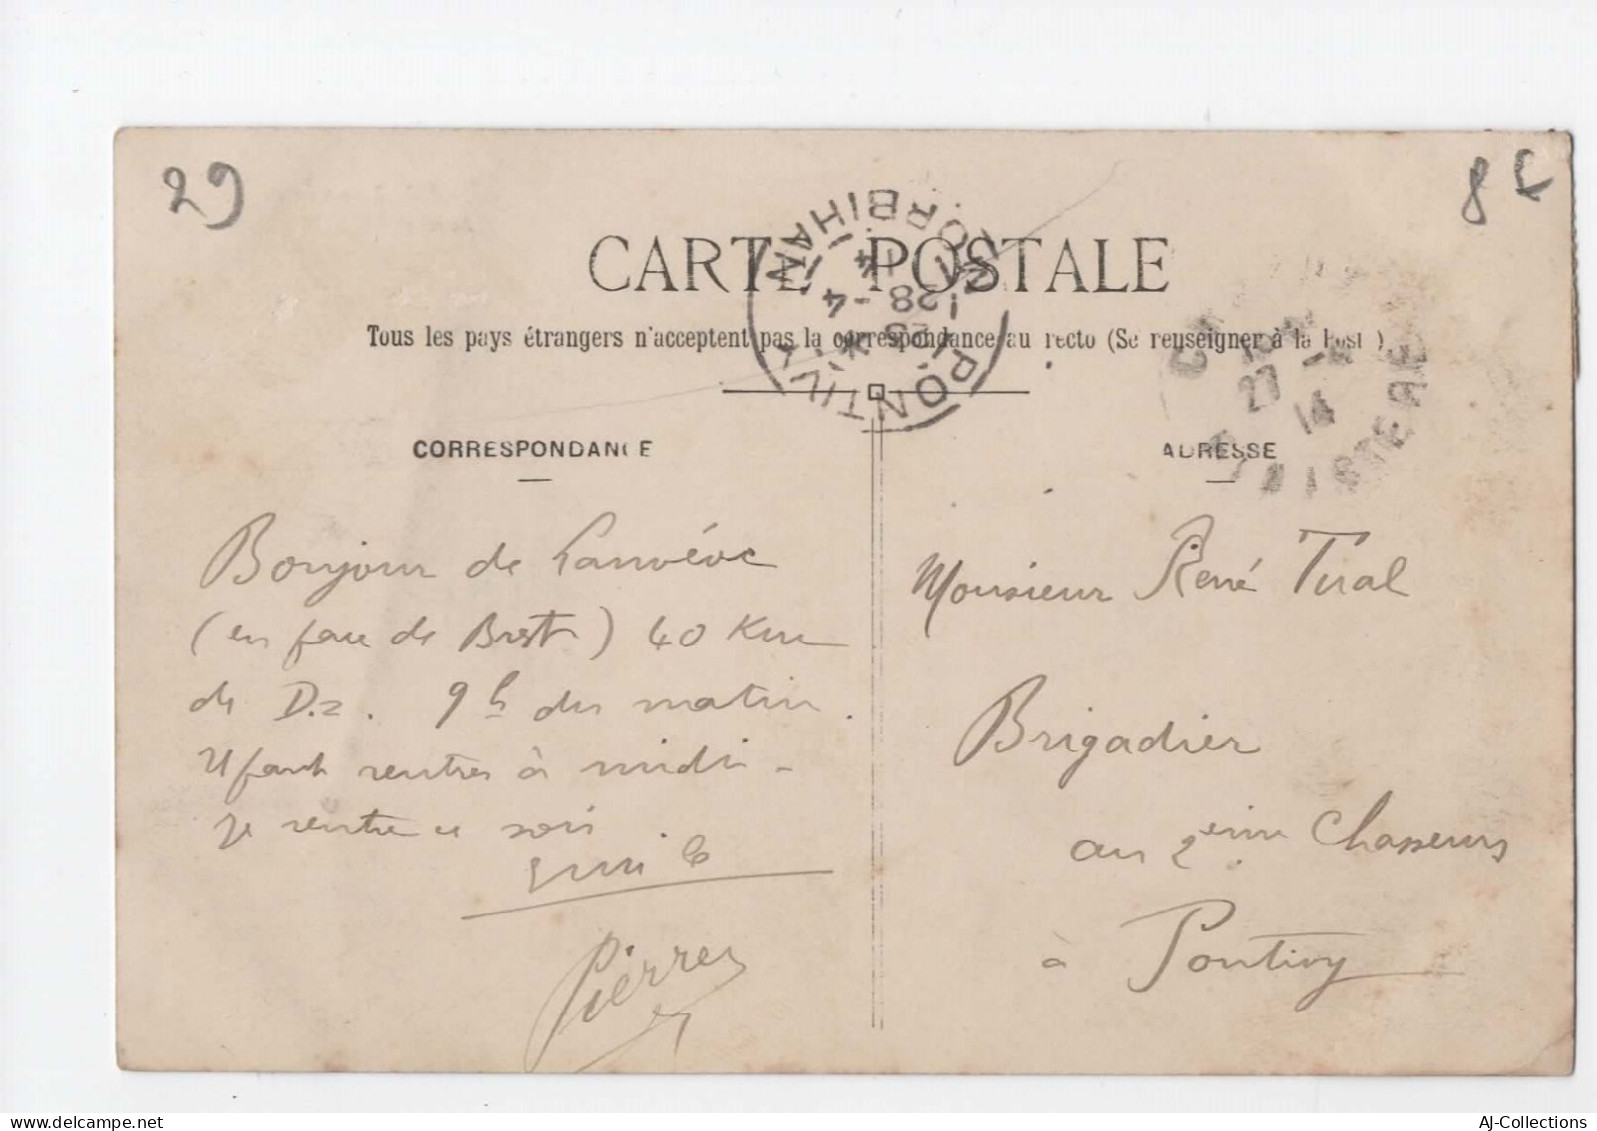 29
8 €
CARTE POSTALE
Tous les pays étrangers n'acceptent pas la correspondance au recto (Se renseigner à la Poste).
PONTIVY MORBIHAN
28 - 4
14
27 - 4
14
FINISTERE
CORRESPONDANCE
ADRESSE
Bonjour de Lanvéoc
(en face de Brest) 40 Km
de D.z. 9h du matin.
Il faut rentrer à midi -
Je rentre ce soir
Emile
Pierre
Monsieur René Tual
Brigadier
au 2eme Chasseurs
à Pontivy
AJ-Collections